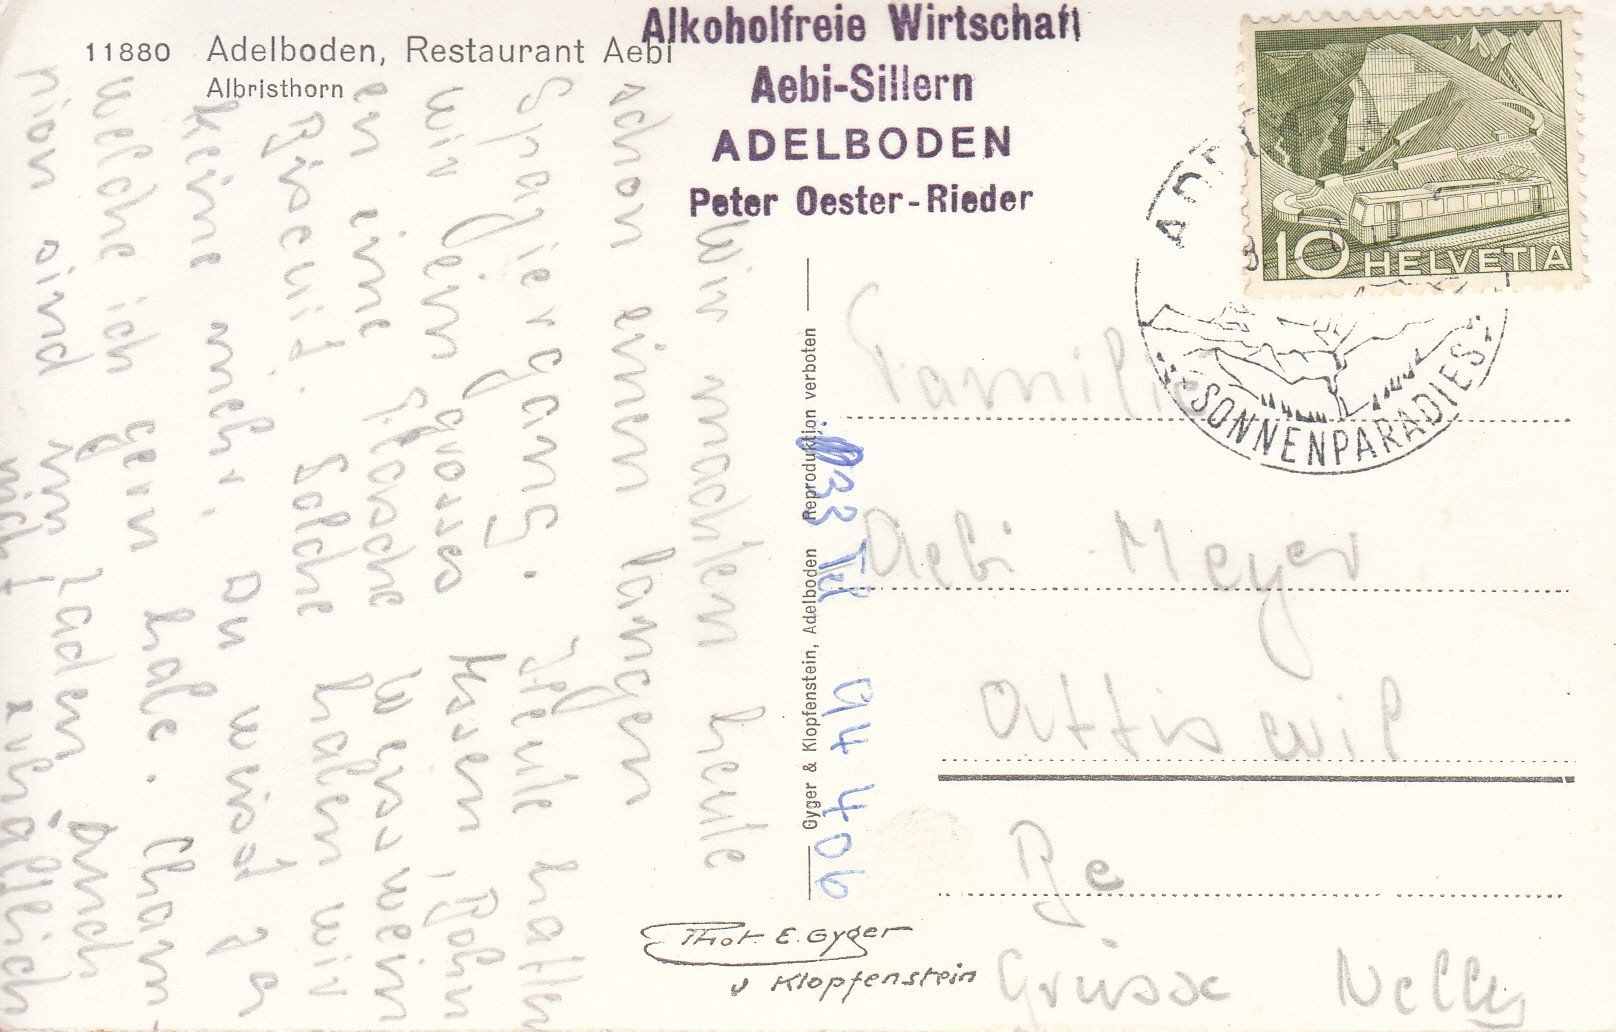 11880 Adelboden, Restaurant Aebi
Albristhorn
Alkoholfreie Wirtschaft
Aebi-Sillern
ADELBODEN
Peter Oester-Rieder
10 HELVETIA
SONNENPARADIES
Wir machten heute
schon einen langen
Spaziergang. Heute hatten
wir ein grosses
en eine Flasche Weisswein
Biscuit. Solche haben wir
keine mehr. Du weist ja
welche ich gern habe. Cham-
pion sind im Laden auch
nicht erhältlich
Gyger & Klopfenstein, Adelboden Reproduktion verboten
033 Tel 944406
Familie
Aebi-Meyer
Attiswil
Be
Grüsse Nelly
Phot. E. Gyger
u Klopfenstein